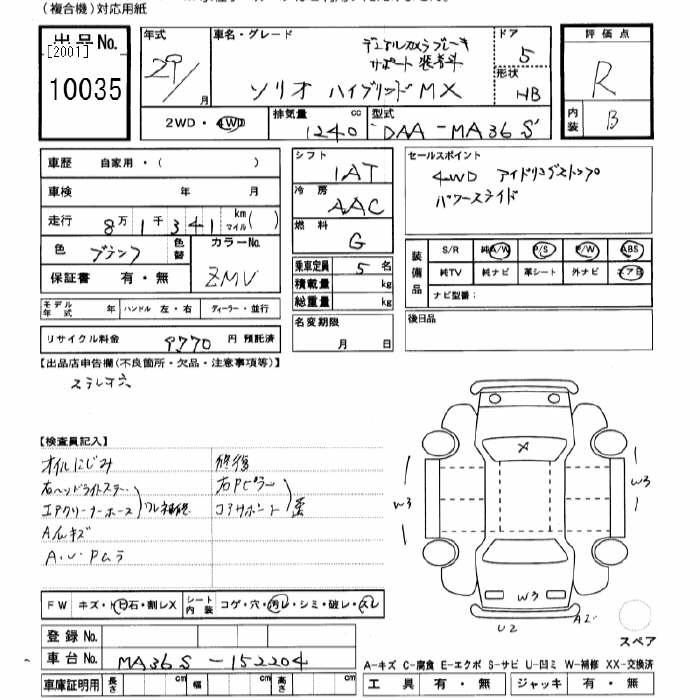 (複合機)対応用紙
出品No.
[2001]
10035
年式 29/ 月
車名・グレード
デュアルカメラブレーキ
サポート装着車
ソリオ ハイブリッドMX
ドア 5
形状 HB
評価点 R
内装 B
2WD・4WD
排気量 1240 cc
型式 DAA-MA36S
車歴 自家用・( )
車検 年 月
走行 8万1千341 km マイル( )
色
色替
カラーNo. ZMV
保証書 有・無
シフト IAT
冷房 AAC
燃料 G
乗車定員 5 名
積載量 kg
総重量 kg
セールスポイント
4WD アイドリングストップ
パワースライド
装備品
S/R 純A/W P/S P/W ABS
純TV 純ナビ 革シート 外ナビ エアB
ナビ型番:
モデル年式 年 ハンドル 左・右 ディーラー・並行
リサイクル料金 9770 円 預託済
名変期限 月 日
後日品
【出品店申告欄(不良箇所・欠品・注意事項等)】
ステレオ穴
【検査員記入】
オイルにじみ
修復
右ヘッドライトステー
右Pピラー
エアクリーナーホース
ワレ補修
コアサポート
歪
Aルキズ
A・U・Pムラ
FW キズ・ト石・割レX
シート内装 コゲ・穴・汚レ・シミ・破レ・スレ
X
W3
W3
W3
U2
A2
スペア
登録No.
車台No. MA36S-152204
車庫証明用 長さ cm 幅 cm 高さ cm
A-キズ C-腐食 E-エクボ S-サビ U-凹ミ W-補修 XX-交換済
工具 有・無 ジャッキ 有・無